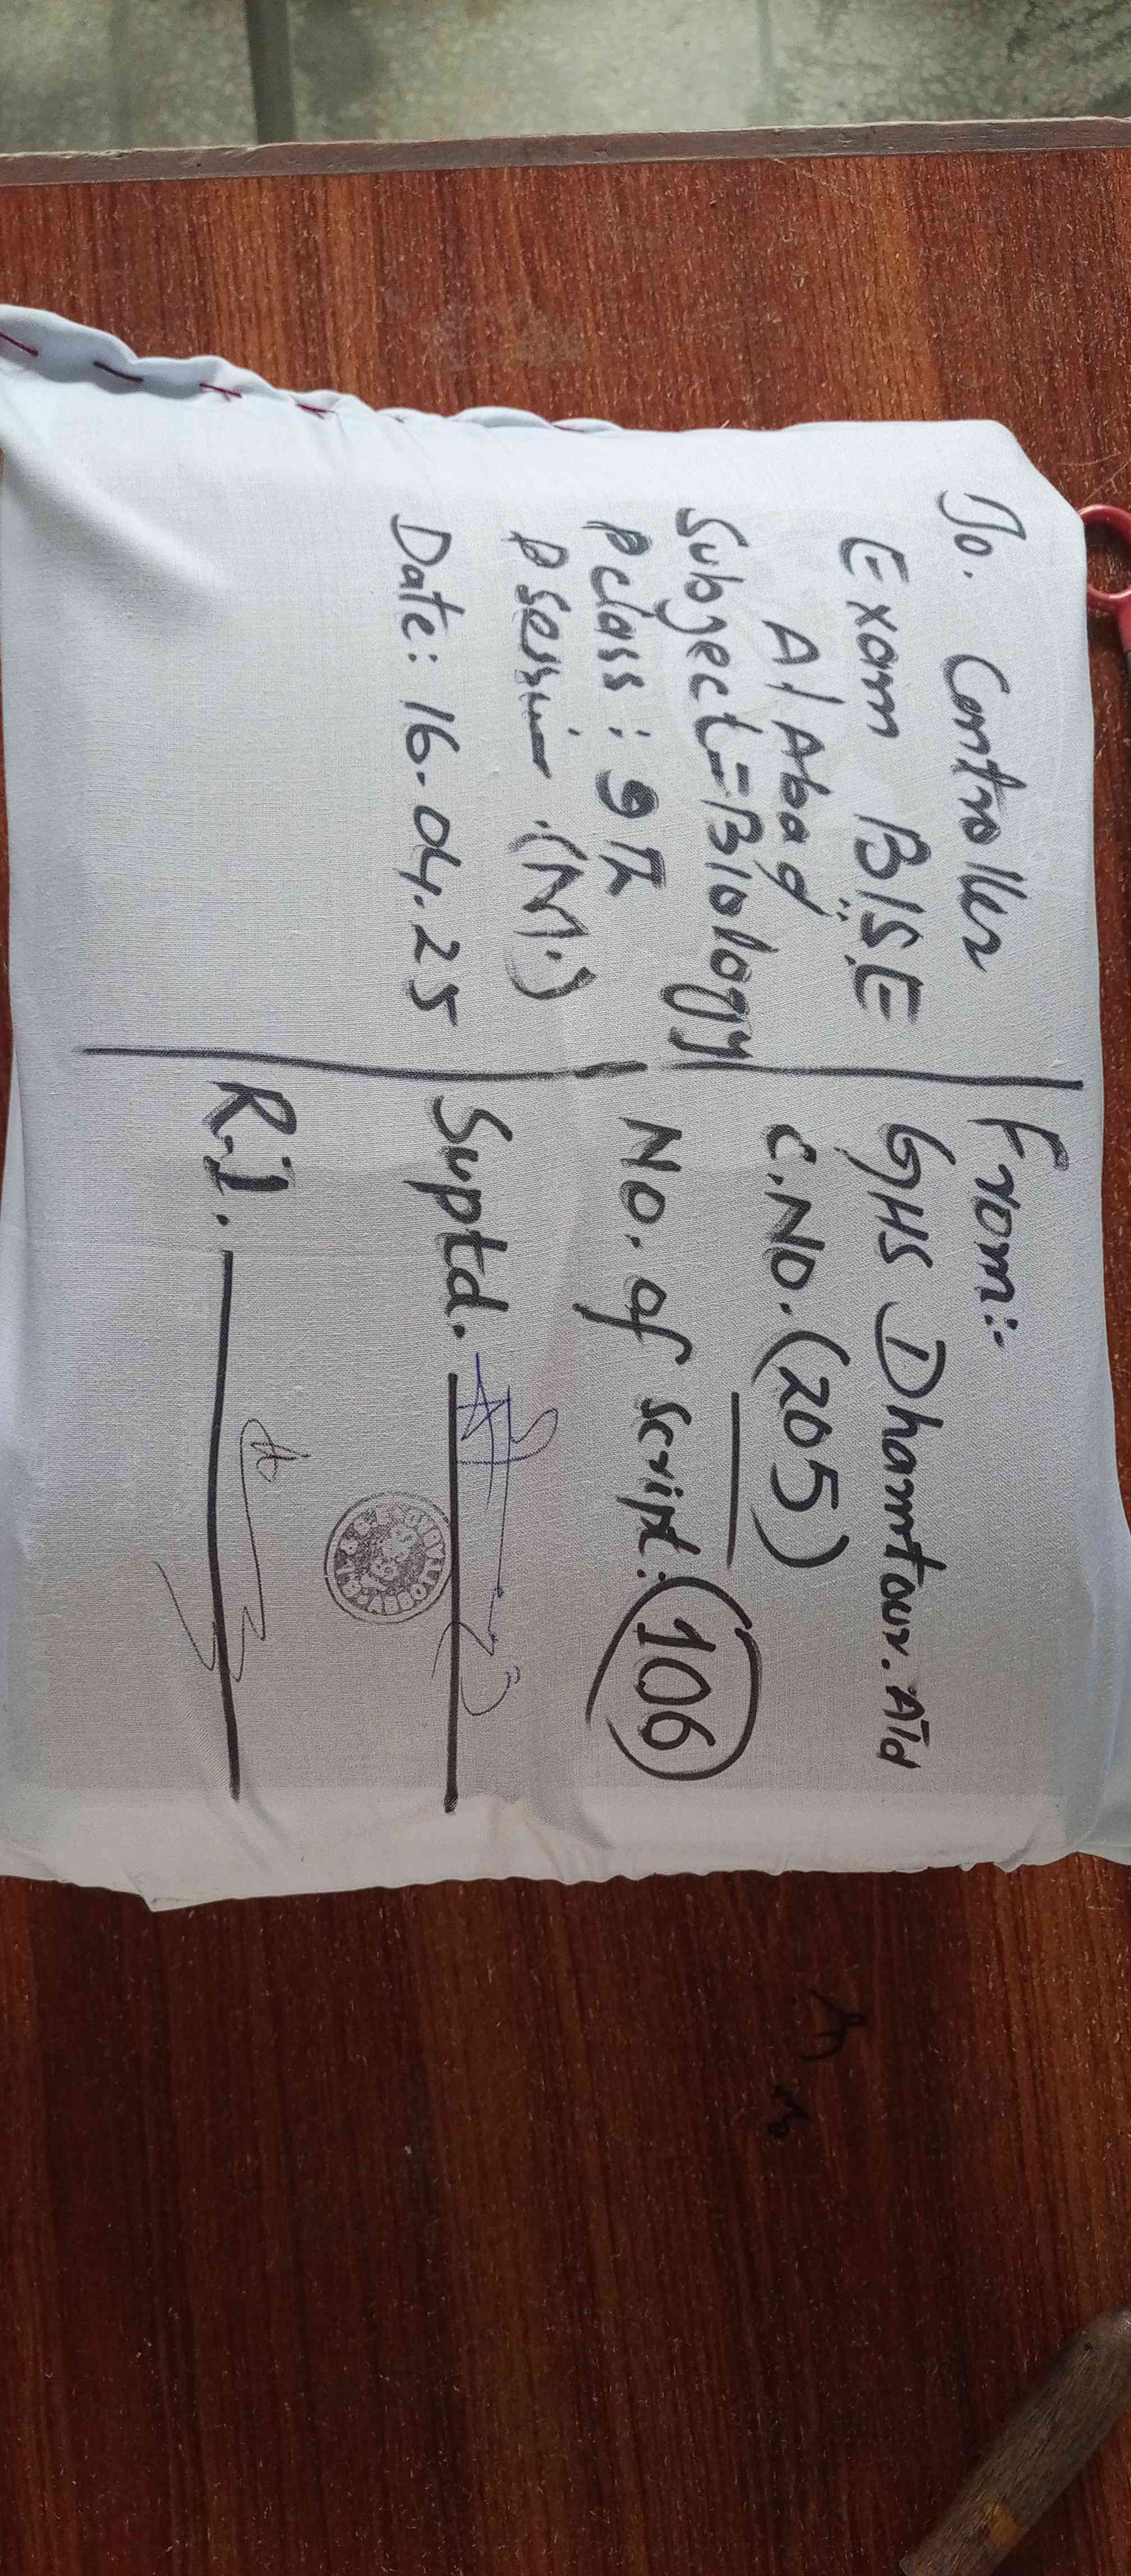 To. Controller
Exam BISE
A/Abad
Subject = Biology
P class: 9th
P session .(M.)
Date: 16.04.25
From:-
GHS Dhamtour. ATd
C.No. (205)
No. of script: 106
Suptd.
R.I.